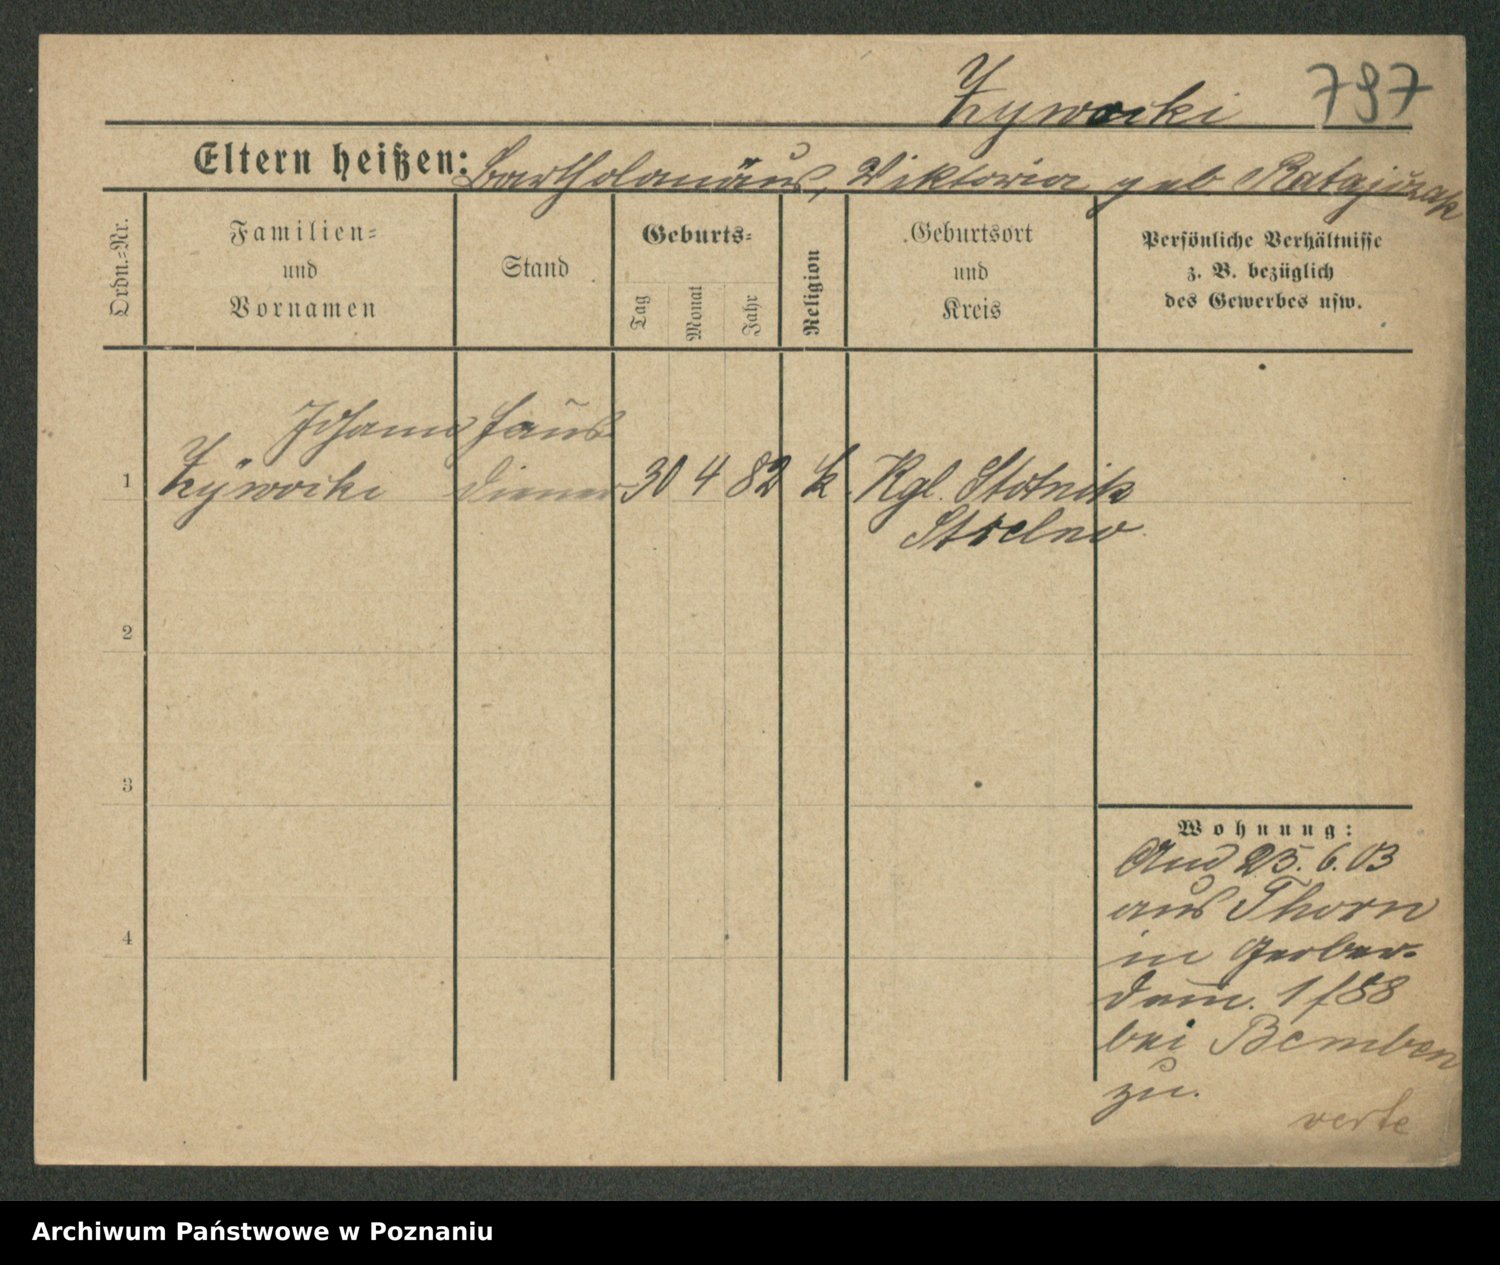 Zywocki 797
Eltern heißen: Bartholomäus, Viktoria geb Ratajczak
Ordn.-Nr.
Familien-
und
Vornamen
Stand
Geburts-
Tag
Monat
Jahr
Religion
Geburtsort
und
Kreis
Persönliche Verhältnisse
z. B. bezüglich
des Gewerbes usw.
Johann Haus
1 Zÿwocki diener 30 4 82 k. Kgl. Slotnik
Strelno
2
3
4
Wohnung:
25. 6. 03
aus Thorn
in Gerber-
damm. 1 f 88
bei Bemben
zu.
verte
Archiwum Państwowe w Poznaniu